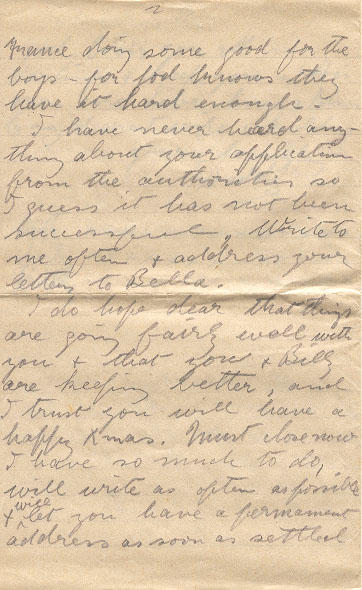 2
France doing some good for the
boys - for God knows they
have it hard enough.
I have never heard any-
thing about your application
from the authorities so
I guess it has not been
successful, Write to
me often & address your
letters to Bella.
I do hope dear that things
are going fairly well with
you & that you & Billy
are keeping better, and
I trust you will have a
happy Xmas. Must close now
I have so much to do,
will write as often as possible
& will let you have a permament
address as soon as settled